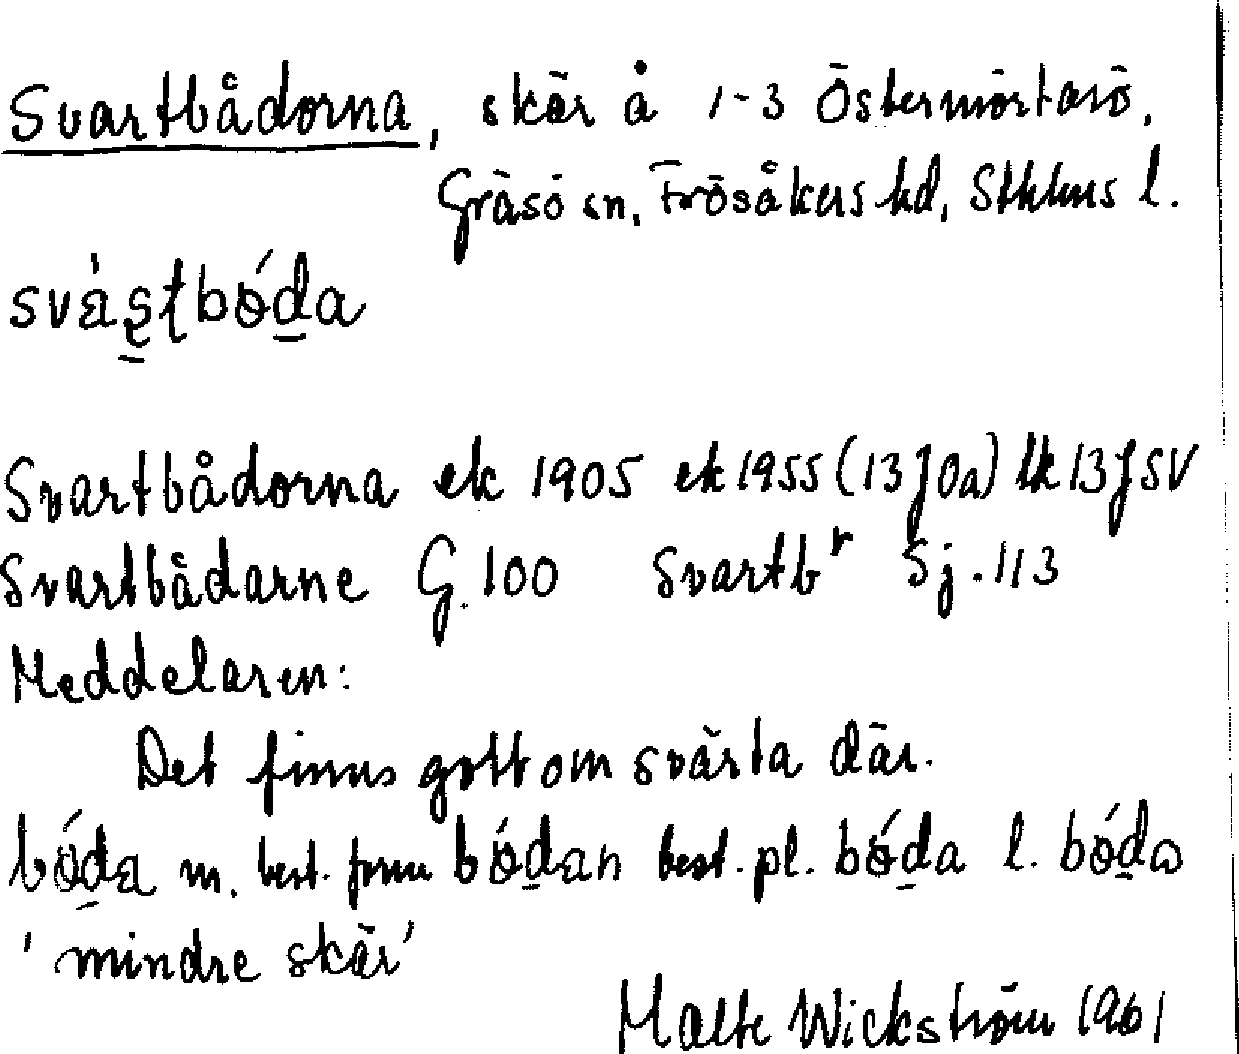 Svartbådorna, skär å 1-3 Östermörtarö,
Gräsö sn, Frösåkers hd, Sthlms l.
Svartbådorna ek 1905 ek 1955 (13J0a) lk 13J SV
Svartbådarne G. 100 Svartbr Sj. 113
Meddelaren:
Det finns gott om svärta där.
m. best. form best. pl. l.
'mindre skär'
Malte Wickström 1961